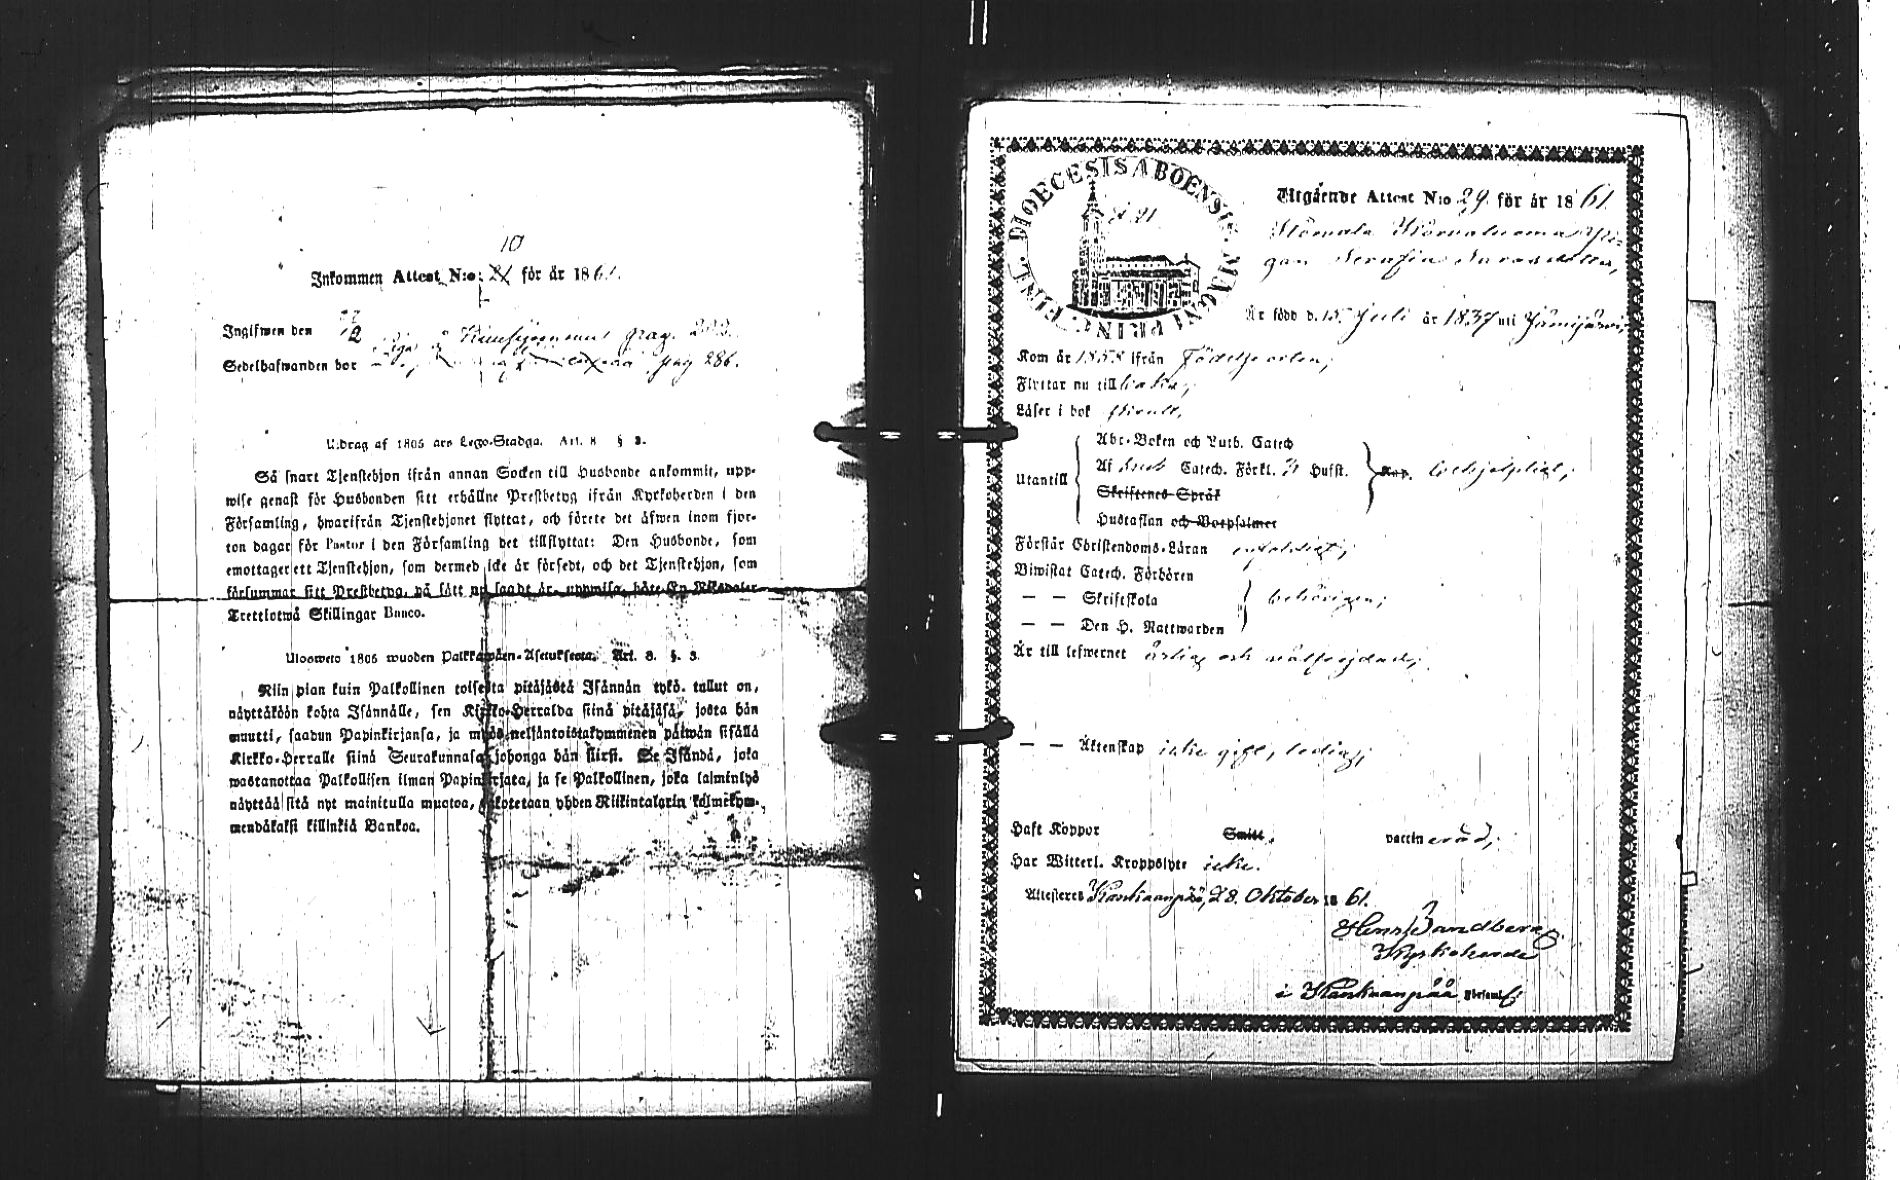 10
Inkommen Attest N:o: 21 för år 1861.
Ingifwen den
Sedelhafwanden bor
pag. 286.
Utdrag af 1805 ars Lego-Stadga. Art. 8 § 3.
Så snart Tjenstehjon ifrån annan Socken till Husbonde ankommit, upp-
wise genast för Husbonden sitt erhållne Prestbetyg ifrån Kyrkoherden i den
Församling, hwarifrån Tjenstehjonet flyttat, och förete det äfwen inom fjor-
ton dagar för Pastor i den Församling det tillflyttat: Den Husbonde, som
emottager ett Tjenstehjon, som dermed icke är försedt, och det Tjenstehjon, som
försummar sitt Prestbetyg, på sätt nu sagdt är, uppwisa, böte En Riksdaler
Trettiotwå Skillingar Banco.
Ulosweto 1805 wuoden Palkkawäen-Asetuksesta. Art. 8. §. 3.
Niin pian kuin Palkollinen toisesta pitäjästä Isännän tykö. tullut on,
näyttäköön kohta Isännälle, sen Kirkko-Herralda siinä pitäjäsä, josta hän
muutti, saadun Papinkirjansa, ja myös neljäntoistakymmenen päiwän sisällä
Kirkko-Herralle siinä Seurakunnasa johonga hän siirsi. Se Isändä, joka
wastanottaa Palkollisen ilman Papinkirjata, ja se Palkollinen, joka laiminlyö
näyttää sitä nyt mainitulla muotoa, sakotetaan yhden Riikintalarin kolmekym-
mendäkaksi killinkiä Bankoa.
DIOECESIS ABOENSIS. MAGNI PRINC. FINL.
№ 21
Utgående Attest N:o 29. för år 1861.
Pi-
gan Serafia
Är född d. 15 Juli år 1837 uti Jämijärwi,
Kom år 1858 ifrån Födelseorten,
Flyttar nu till
Läser i bok
Utantill
Abc-Boken och Luth. Catech
Af Catech. Förkl. Hufst.
Skriftenes Språk
Hustaflan och Botpsalmer
Förstår Christendoms-Läran
Biwistat Catech. Förhören
— — Skriftskola behörigen;
— — Den H. Nattwarden
Är till lefwernet ärlig och
— — Äktenskap icke gift, ledig;
Haft Koppor Smitt. vaccinerad;
Har Witterl. Kroppslyte icke.
Attesteras Kankaanpää, 28. Oktober 1861.
Henr. Sandberg
Kyrkoherde
i Kankaanpää Församl: